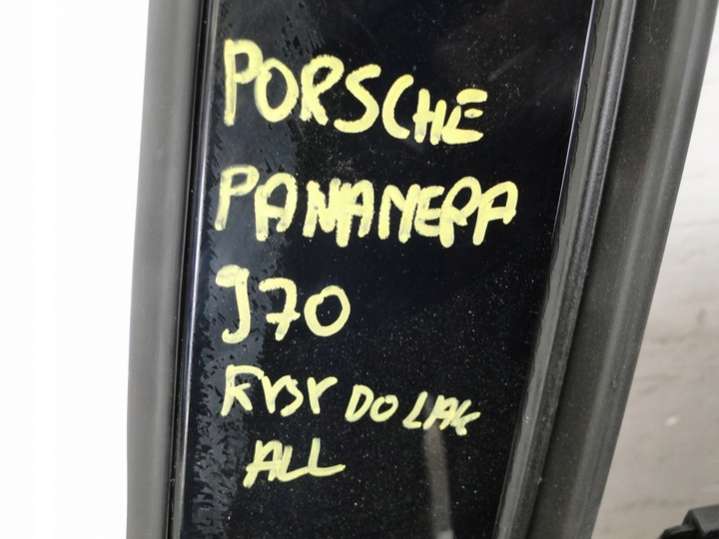 PORSCHE
PANAMERA
970
RYSY DO LAK
ALL